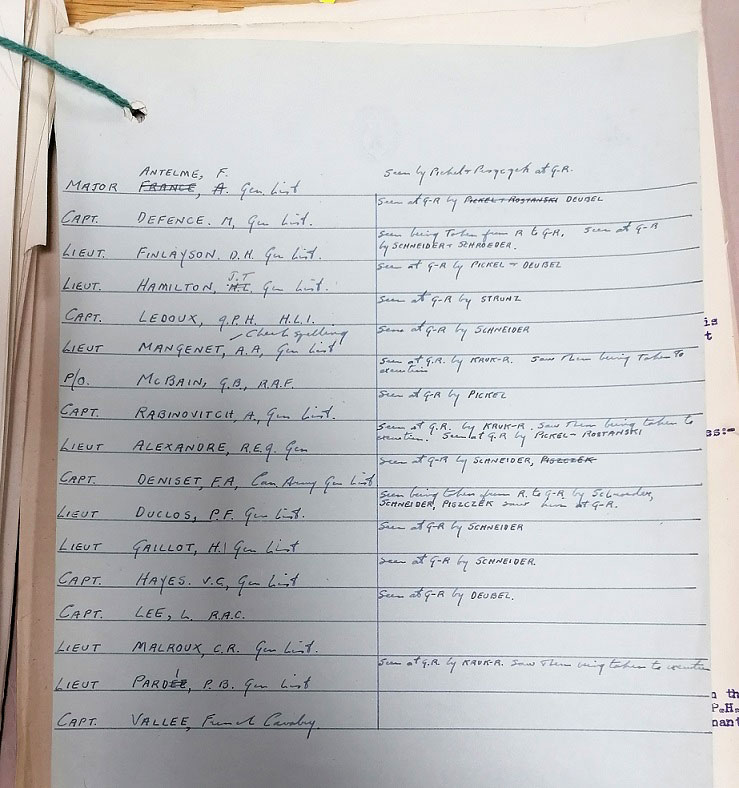 ANTELME, F.
Seen by Pickel + Piszczek at G.R.
MAJOR FRANCE, A. Gen List
Seen at G-R by PICKEL + ROSTANSKI DEUBEL
CAPT. DEFENCE. M, Gen List.
Seen being taken from R to G-R, Seen at G-R
by SCHNEIDER + SCHROEDER.
LIEUT. FINLAYSON. D.H. Gen List.
Seen at G-R by PICKEL + DEUBEL
J.T
LIEUT. HAMILTON, H.L. Gen List.
Seen at G-R by STRUNZ
CAPT. LEDOUX, G.P.H. H.L.I.
Check spelling
Seen at G-R by SCHNEIDER
LIEUT MANGENET, A.A, Gen List
Seen at G.R. by KRUK-R. Saw them being taken to
execution
P/O. McBAIN, G.B, R.A.F.
Seen at G-R by PICKEL
CAPT. RABINOVITCH, A, Gen List.
Seen at G.R. by KRUK-R. Saw them being taken to
execution. Seen at G.R by PICKEL - ROSTANSKI
LIEUT ALEXANDRE, R.E.G. Gen
Seen at G-R by SCHNEIDER, PISZCZEK
CAPT. DENISET, F.A, Can Army Gen List
Seen being taken from R. to G-R by Schroeder,
SCHNEIDER, PISZCZEK saw him at G-R.
LIEUT DUCLOS, P.F. Gen List.
Seen at G-R by SCHNEIDER
LIEUT GAILLOT, H. Gen List
Seen at G-R by SCHNEIDER.
CAPT. HAYES. V.C, Gen List
Seen at G-R by DEUBEL.
CAPT. LEE, L. R.A.C.
LIEUT MALROUX, C.R. Gen List.
Seen at G.R by KRUK-R. Saw them being taken to execution
LIEUT PARDÉE, P.B. Gen List
CAPT. VALLEE, French Cavalry.
is
t
ss:-
n th
P.H.
nant